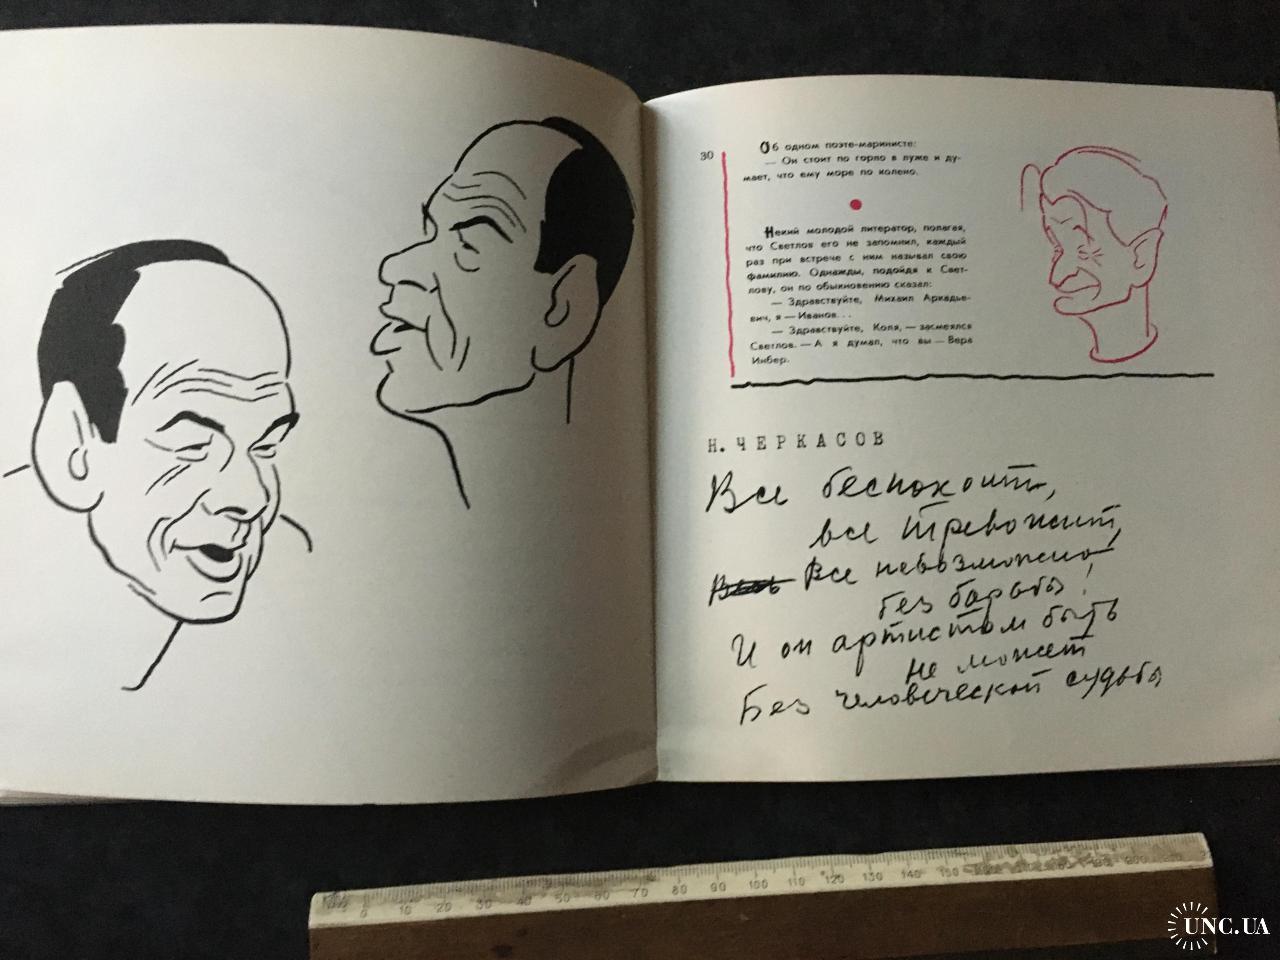 30
Об одном поэте-маринисте:
— Он стоит по горло в луже и ду-
мает, что ему море по колено.
Некий молодой литератор, полагая,
что Светлов его не запомнил, каждый
раз при встрече с ним называл свою
фамилию. Однажды, подойдя к Свет-
лову, он по обыкновению сказал:
— Здравствуйте, Михаил Аркадье-
вич, я — Иванов...
— Здравствуйте, Коля, — засмеялся
Светлов. — А я думал, что вы — Вера
Инбер.
Н. ЧЕРКАСОВ
Все беспокоит,
все тревожит,
Все невозможно
без борьбы!
И он артистом быть
не может
Без человеческой судьбы
0 10 20 30 40 50 60 70 80 90 100 110 120 130 140 150
UNC.UA